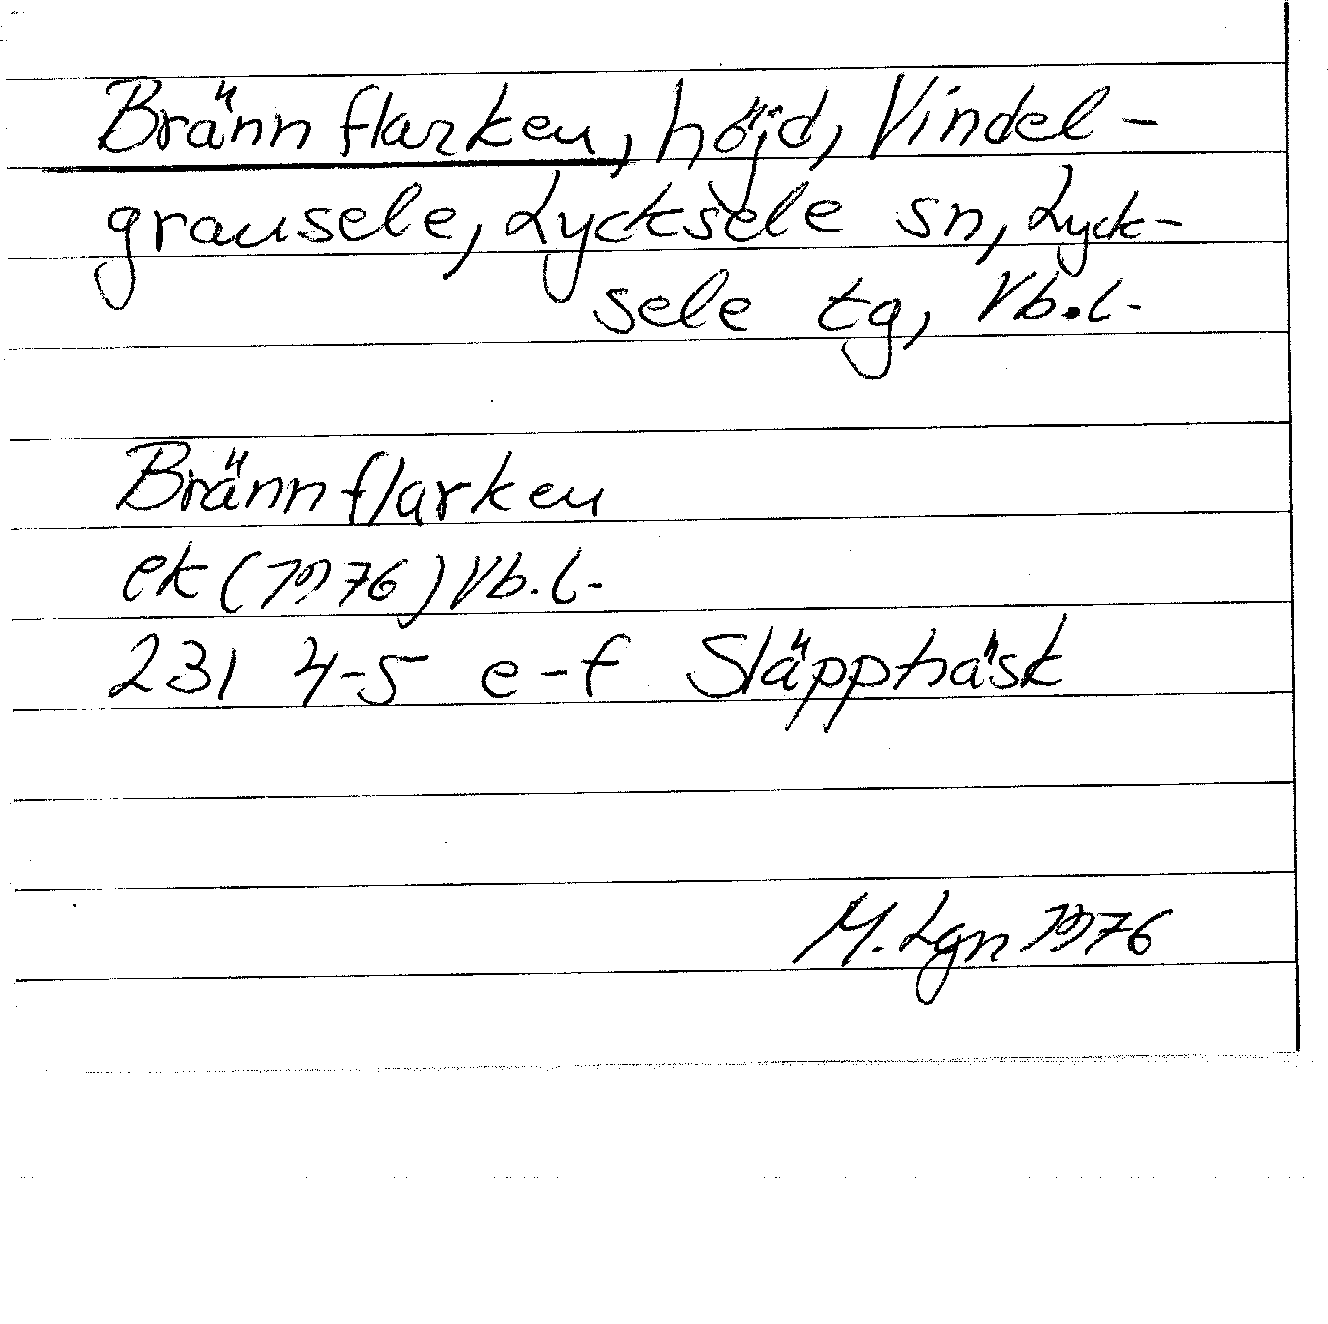 Brännflarken, höjd, Vindel-
gransele, Lycksele sn, Lyck-
sele tg, Vb.l.
Brännflarken
ek (1976) Vb.l.
231 4-5 e-f Släppträsk
M. Lgn 1976